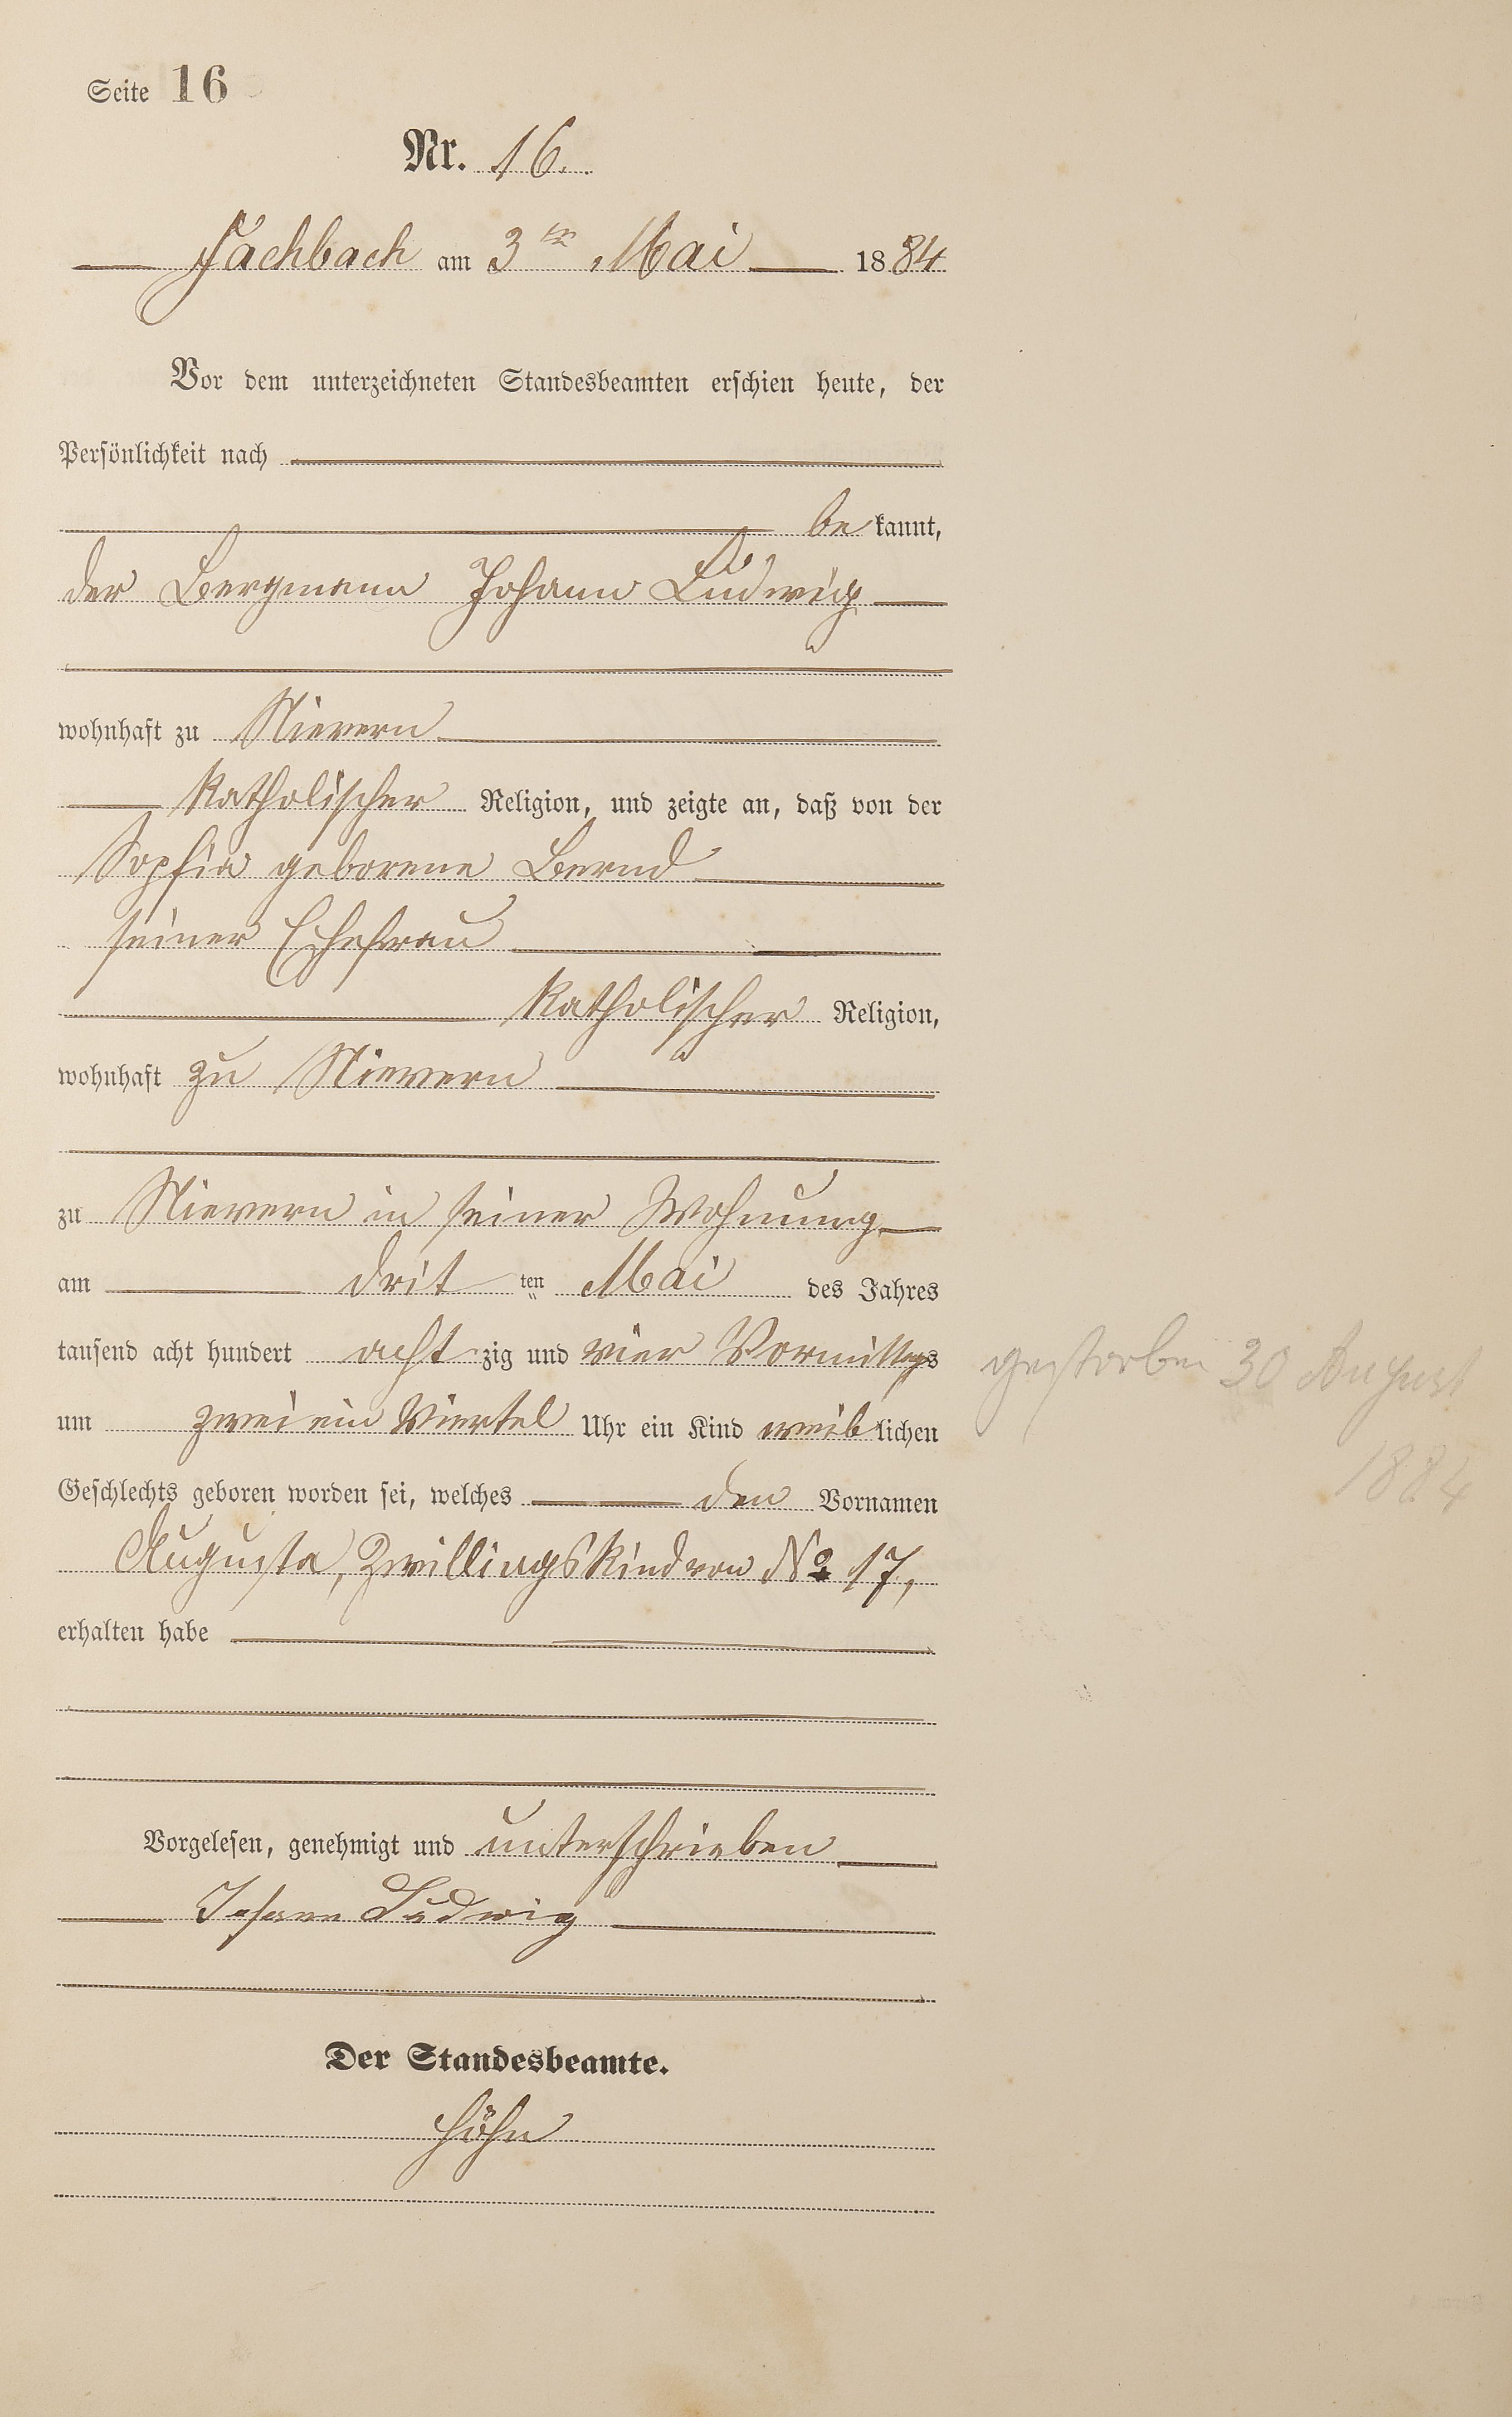 Seite 16
Nr. 16.
Fachbach am 3ten Mai 1884
Vor dem unterzeichneten Standesbeamten erschien heute, der
Persönlichkeit nach
bekannt,
der Bergmann Johann Ludwig
wohnhaft zu Nievern
katholischer Religion, und zeigte an, daß von der
Sophia geborene Bernd
seiner Ehefrau
katholischer Religion,
wohnhaft zu Nievern
zu Nievern in seiner Wohnung
am dritten Mai des Jahres
tausend acht hundert achtzig und vier Vormittags
um zwei ein Viertel Uhr ein Kind weiblichen
Geschlechts geboren worden sei, welches den Vornamen
Augusta, Zwillingskind von No 17,
erhalten habe
gestorben 30 August
1884
Vorgelesen, genehmigt und unterschrieben
Johann Ludwig
Der Standesbeamte.
Höhn